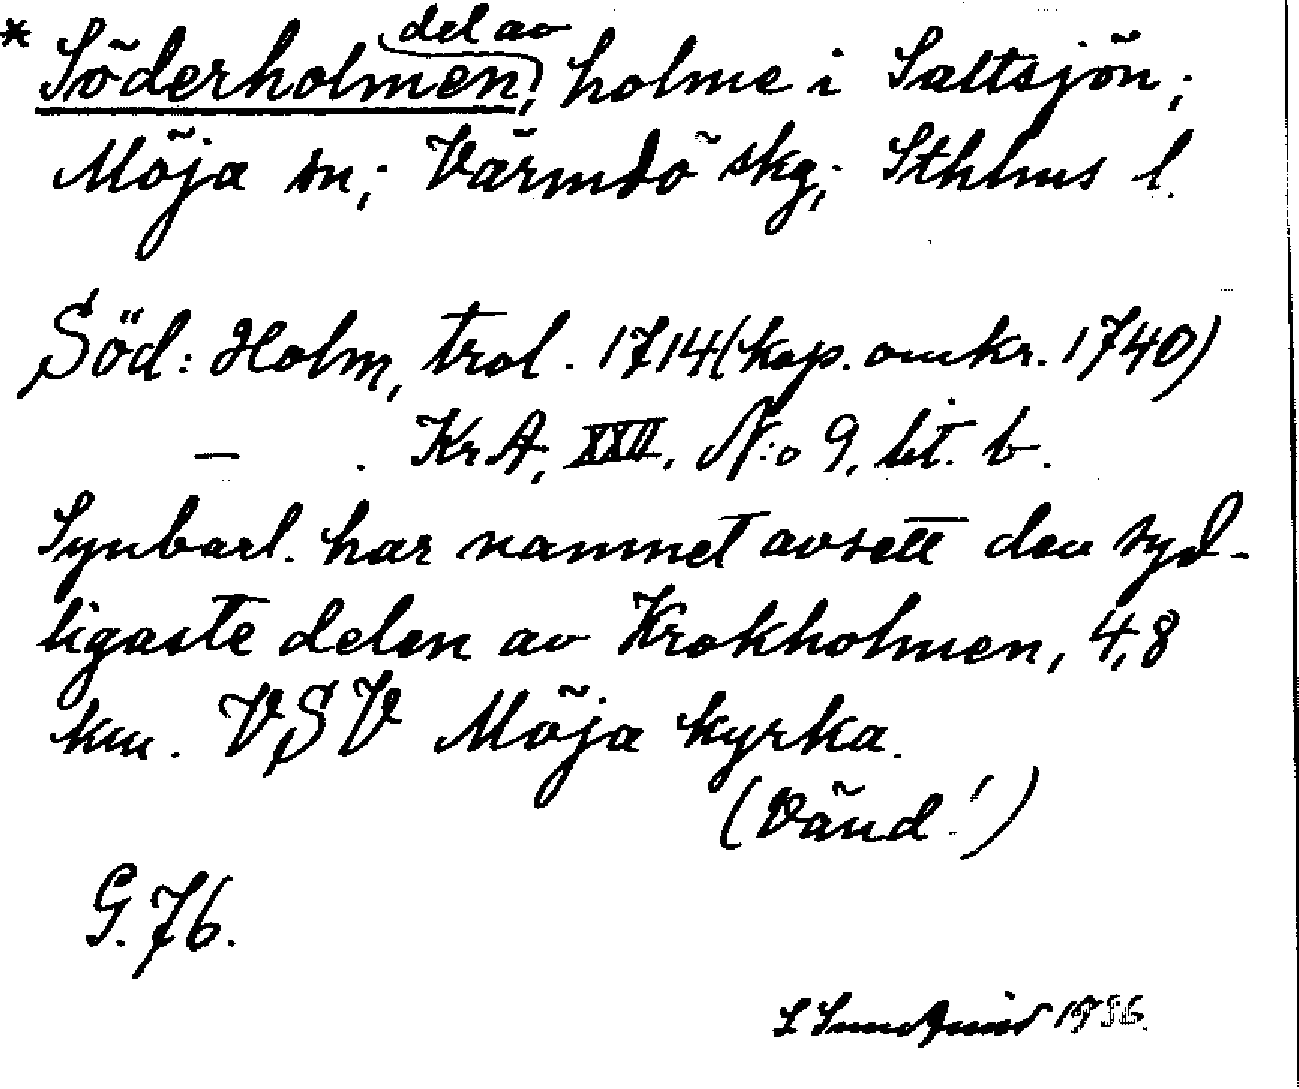 * Söderholmen, del av holme i Saltsjön;
Möja sn; Värmdö skg; Sthlms l.
Söd: Holm, trol. 1714 (kop. omkr. 1740)
— . KrA, XXII. N:o 9, lit. b.
Synbarl. har namnet avsett den syd-
ligaste delen av Krokholmen, 4,8
km. VSV Möja kyrka.
(Vänd!)
G. 76.
S Sundqvist 1936.